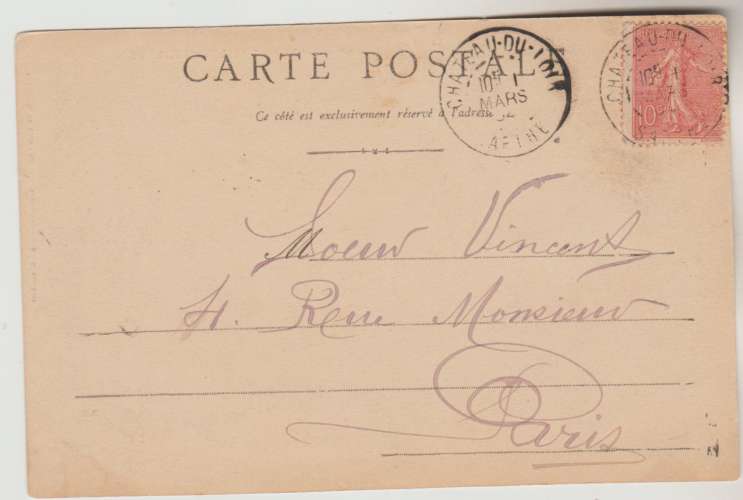 CARTE POSTALE
Ce côté est exclusivement réservé à l'adresse
CHATEAU-DU-LOIR
10E 1
MARS
SARTHE
CHATEAU-DU-LOIR
10
Vincent
4. Rue Monsieur
Paris